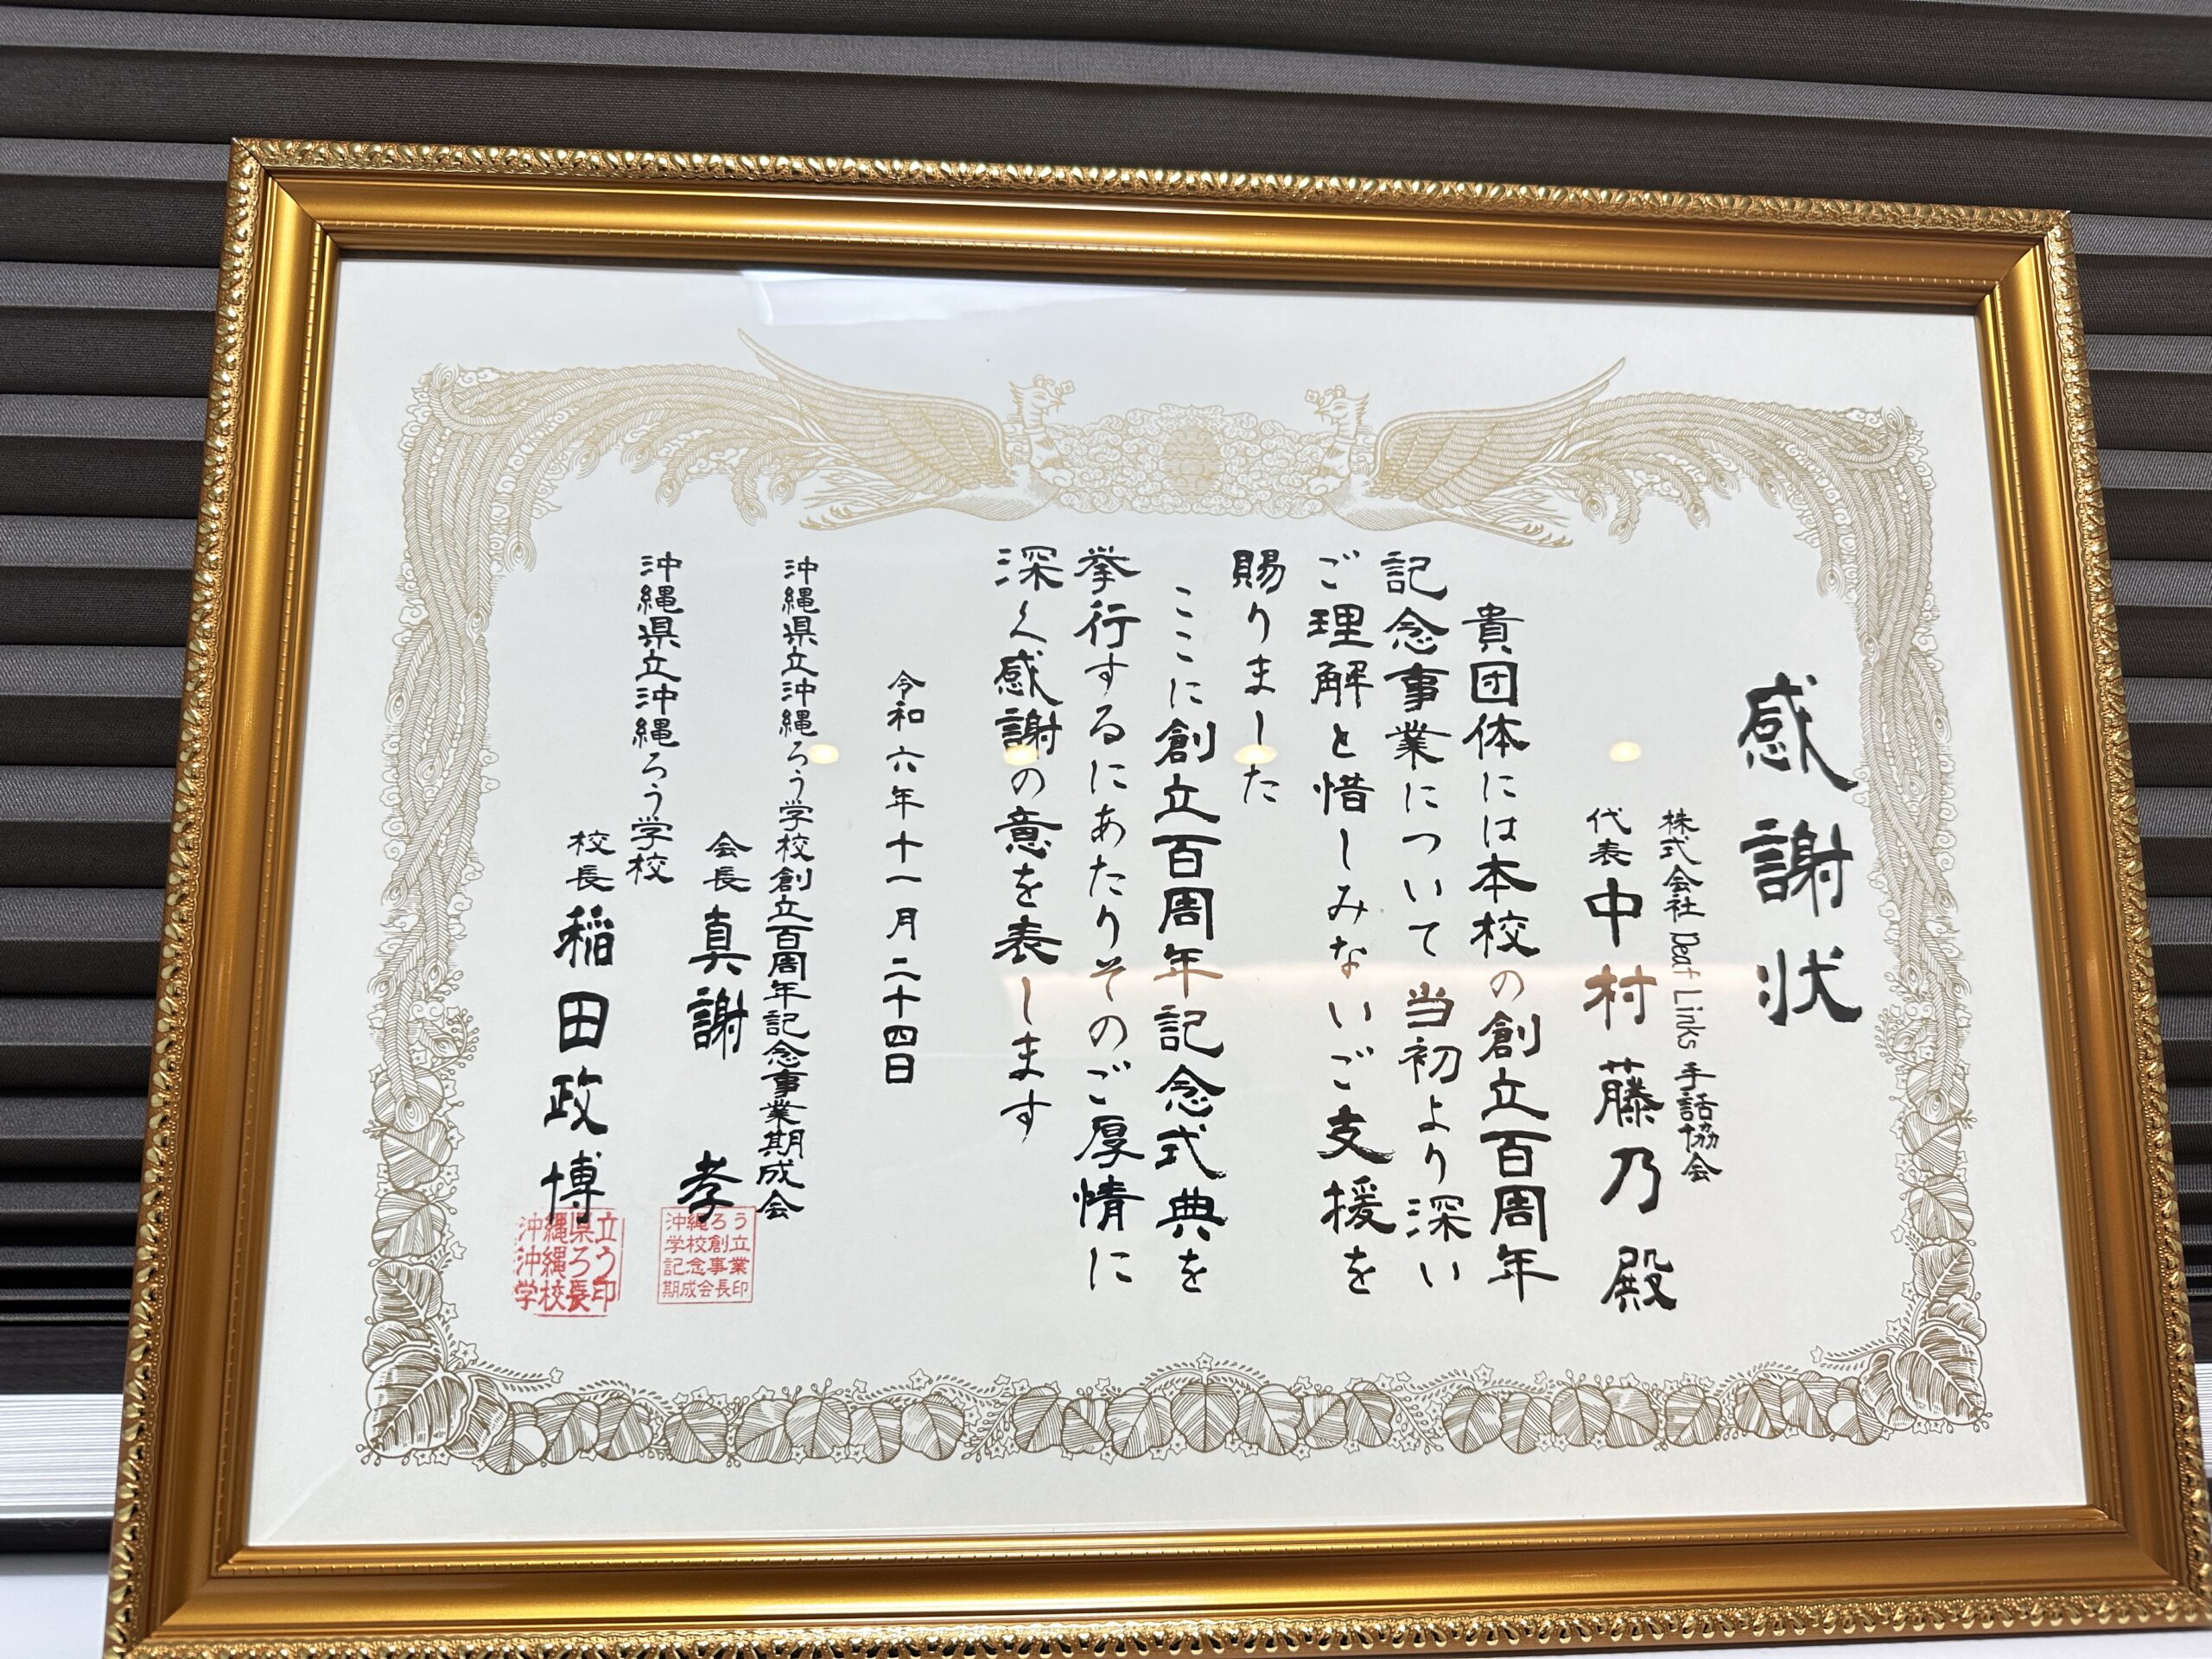 感謝状
株式会社 Deaf Links 手話協会
代表 中村藤乃 殿
貴団体には本校の創立百周年
記念事業について当初より深い
ご理解と惜しみないご支援を
賜りました
ここに創立百周年記念式典を
挙行するにあたりそのご厚情に
深く感謝の意を表します
令和六年十一月二十四日
沖縄県立沖縄ろう学校創立百周年記念事業期成会
会長 真謝 孝
沖縄ろう
学校創立
記念事業
期成会長印
沖縄県立沖縄ろう学校
校長 稲田政博
沖縄県立
沖縄ろう
学校長印